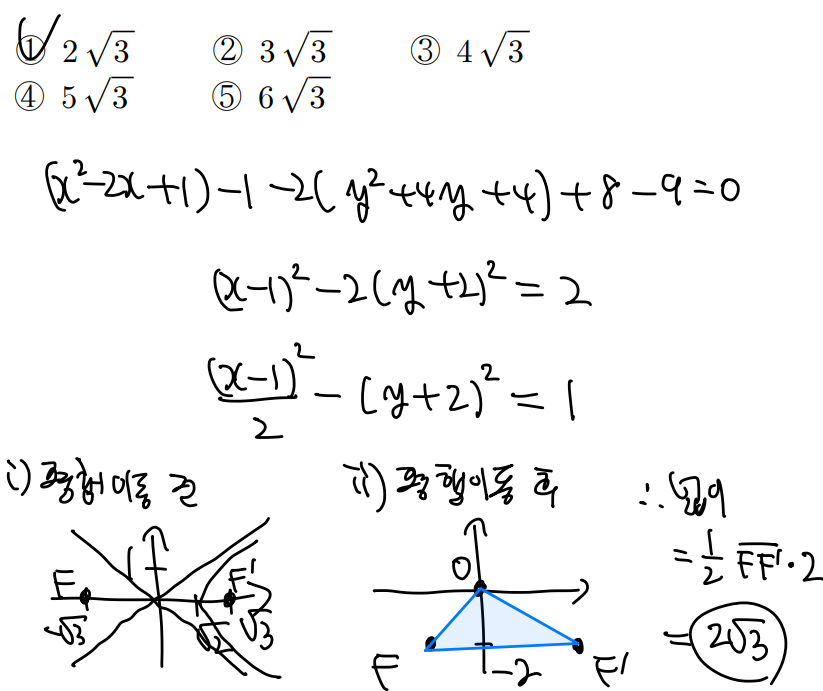 ① 2√3 ② 3√3 ③ 4√3
④ 5√3 ⑤ 6√3
(x²-2x+1)-1-2(y²+4y+4)+8-9=0
(x-1)²-2(y+2)²=2
(x-1)²/2-(y+2)²=1
i) 평행이동 전
F -√3 1 √2 F' √3
ii) 평행이동 후
O F -2 F'
∴ 넓이
=1/2 FF'·2
=2√3